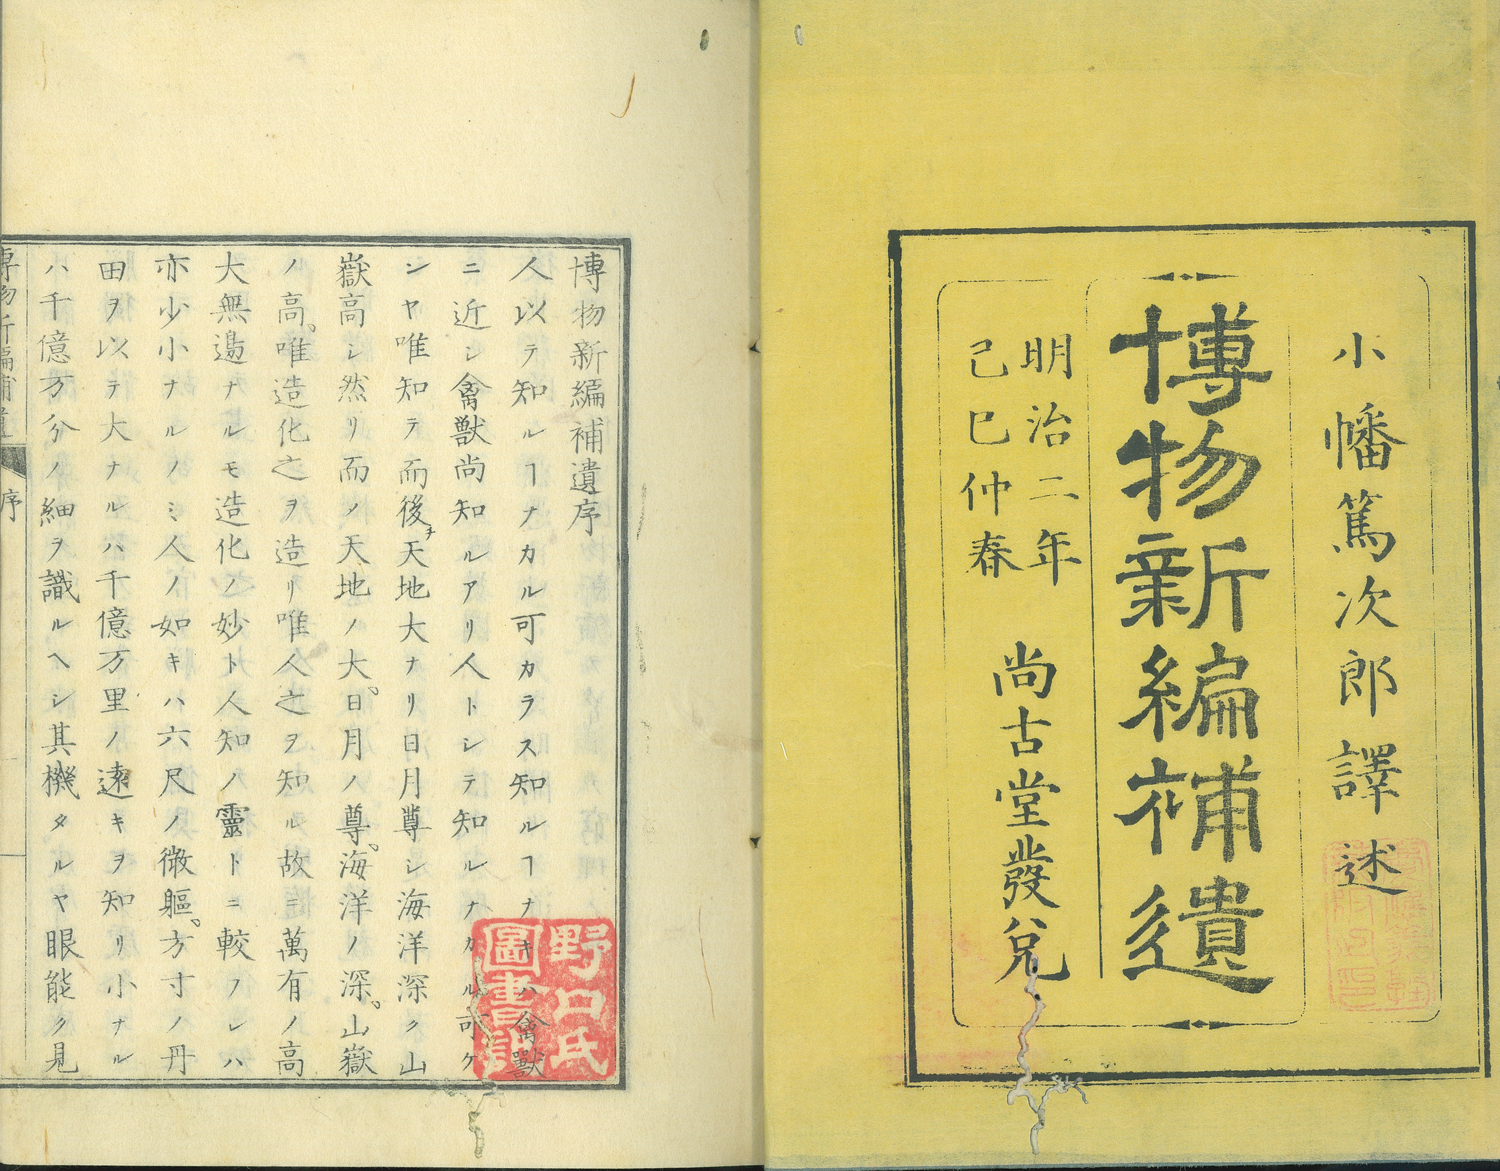 小幡篤次郎譯述
博物新編補遺
明治二年
己巳仲春
尚古堂發兌
博物新編補遺序
人以テ知ルヿナカル可カラス知ルヿナキハ禽獸
ニ近シ禽獣尚知ルアリ人トシテ知ルナカル可ケ
ンヤ唯知テ而後チ天地大ナリ日月尊シ海洋深ク山
嶽高シ然リ而メ天地ノ大。日月ノ尊。海洋ノ深。山嶽
ノ高。唯造化之ヲ造リ唯人之ヲ知ル故ニ萬有ノ高
大無邉ナルモ造化ノ妙ト人知ノ靈トニ較フレハ
亦少小ナルノミ人ノ如キハ六尺ノ微軀。方寸ノ丹
田ヲ以テ大ナルハ千億万里ノ遠キヲ知リ小ナル
ハ千億万分ノ細ヲ識ルヘシ其機タルヤ眼能ク見
博物新編補遺
序
野口氏
圖書記